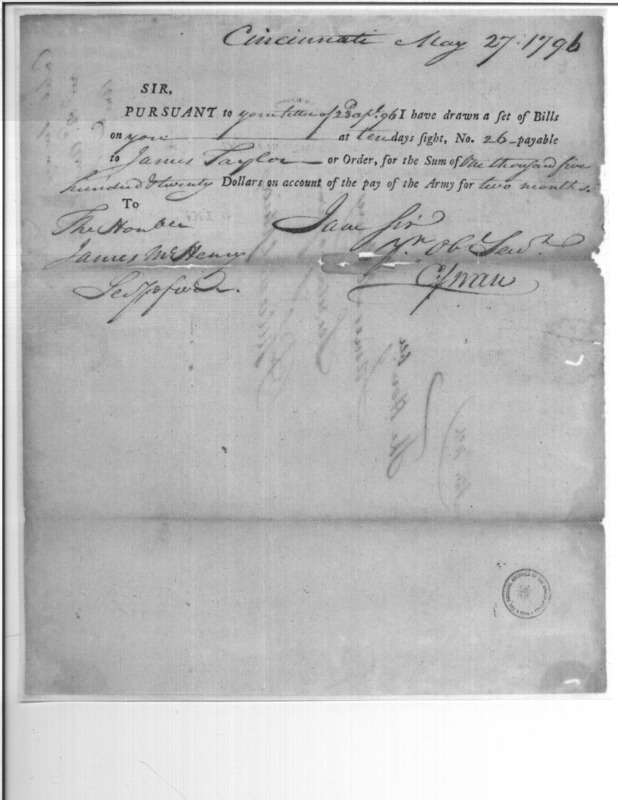 Cincinnati May 27. 1796
SIR,
PURSUANT to your letter of 23d apl. 96 I have drawn a set of Bills
on you at ten days sight, No. 26 payable
to James Taylor or Order, for the Sum of One thousand five
hundred & twenty Dollars on account of the pay of the Army for two months.
To
The Honble I am Sir
James McHenry Yr. Obt. Servt.
Secy of War. C Swan